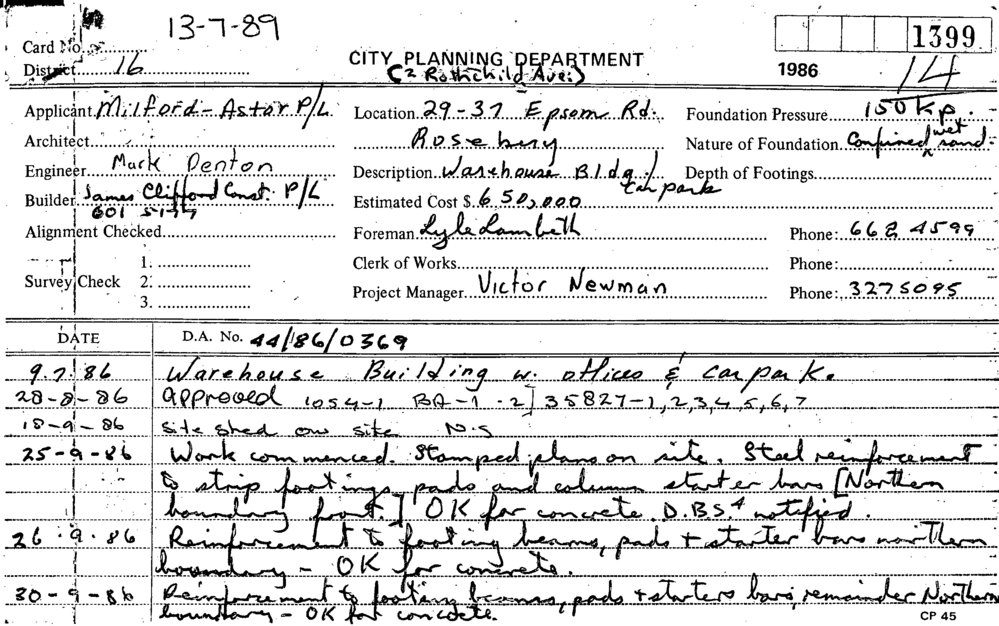 13-7-89
Card No.
District 16
CITY PLANNING DEPARTMENT
(2 Rothchild Ave.)
1399
1986
14
Applicant Milford-Astor P/L
Location 29-37 Epsom Rd.
Foundation Pressure 150 Kp.
Architect
Rosebery
Nature of Foundation Confined wet sand.
Engineer Mark Denton
Description Warehouse Bldg/
Depth of Footings
car park
Builder James Clifford Const. P/L
601 5177
Estimated Cost $ 650,000
Alignment Checked
Foreman Lyle Lambeth
Phone: 662 4599
Survey Check
1.
2.
3.
Clerk of Works
Phone:
Project Manager Victor Newman
Phone: 3275095
DATE
D.A. No. 44/86/0369
9.7.86 Warehouse Building w. offices & carpark.
28-8-86 approved 1054-1 BA-1-2] 35827-1,2,3,4,5,6,7
18-9-86 Site shed on site N.S
25-9-86 Work commenced. Stamped plans on site. Steel reinforcement
to strip footings, pads and column starter bars [Northern
boundary front.] OK for concrete D.B.S 4 notified.
26.9.86 Reinforcement to footing beams, pads + starter bars northern
boundary - OK for concrete.
30-9-86 Reinforcement to footing beams, pads + starters bars, remainder Northern
boundary - OK for concrete.
CP 45